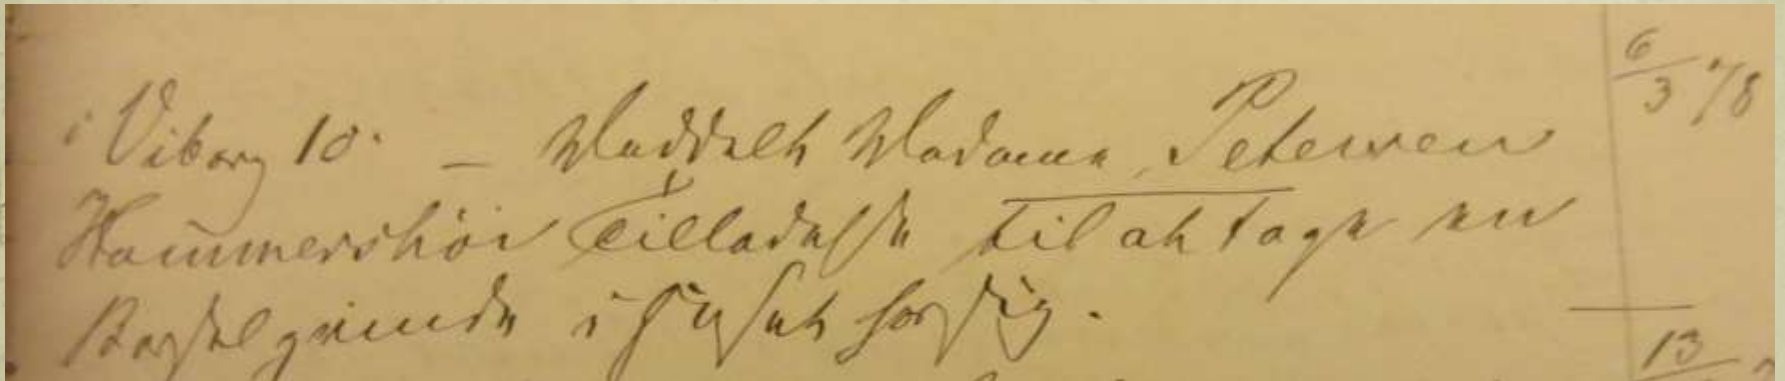 6/3 78
i Viborg 10. — Meddelt Madame Petersen
Hammershöi Tilladelse til at tage en
Barselqvinde i Huset hos sig.
13